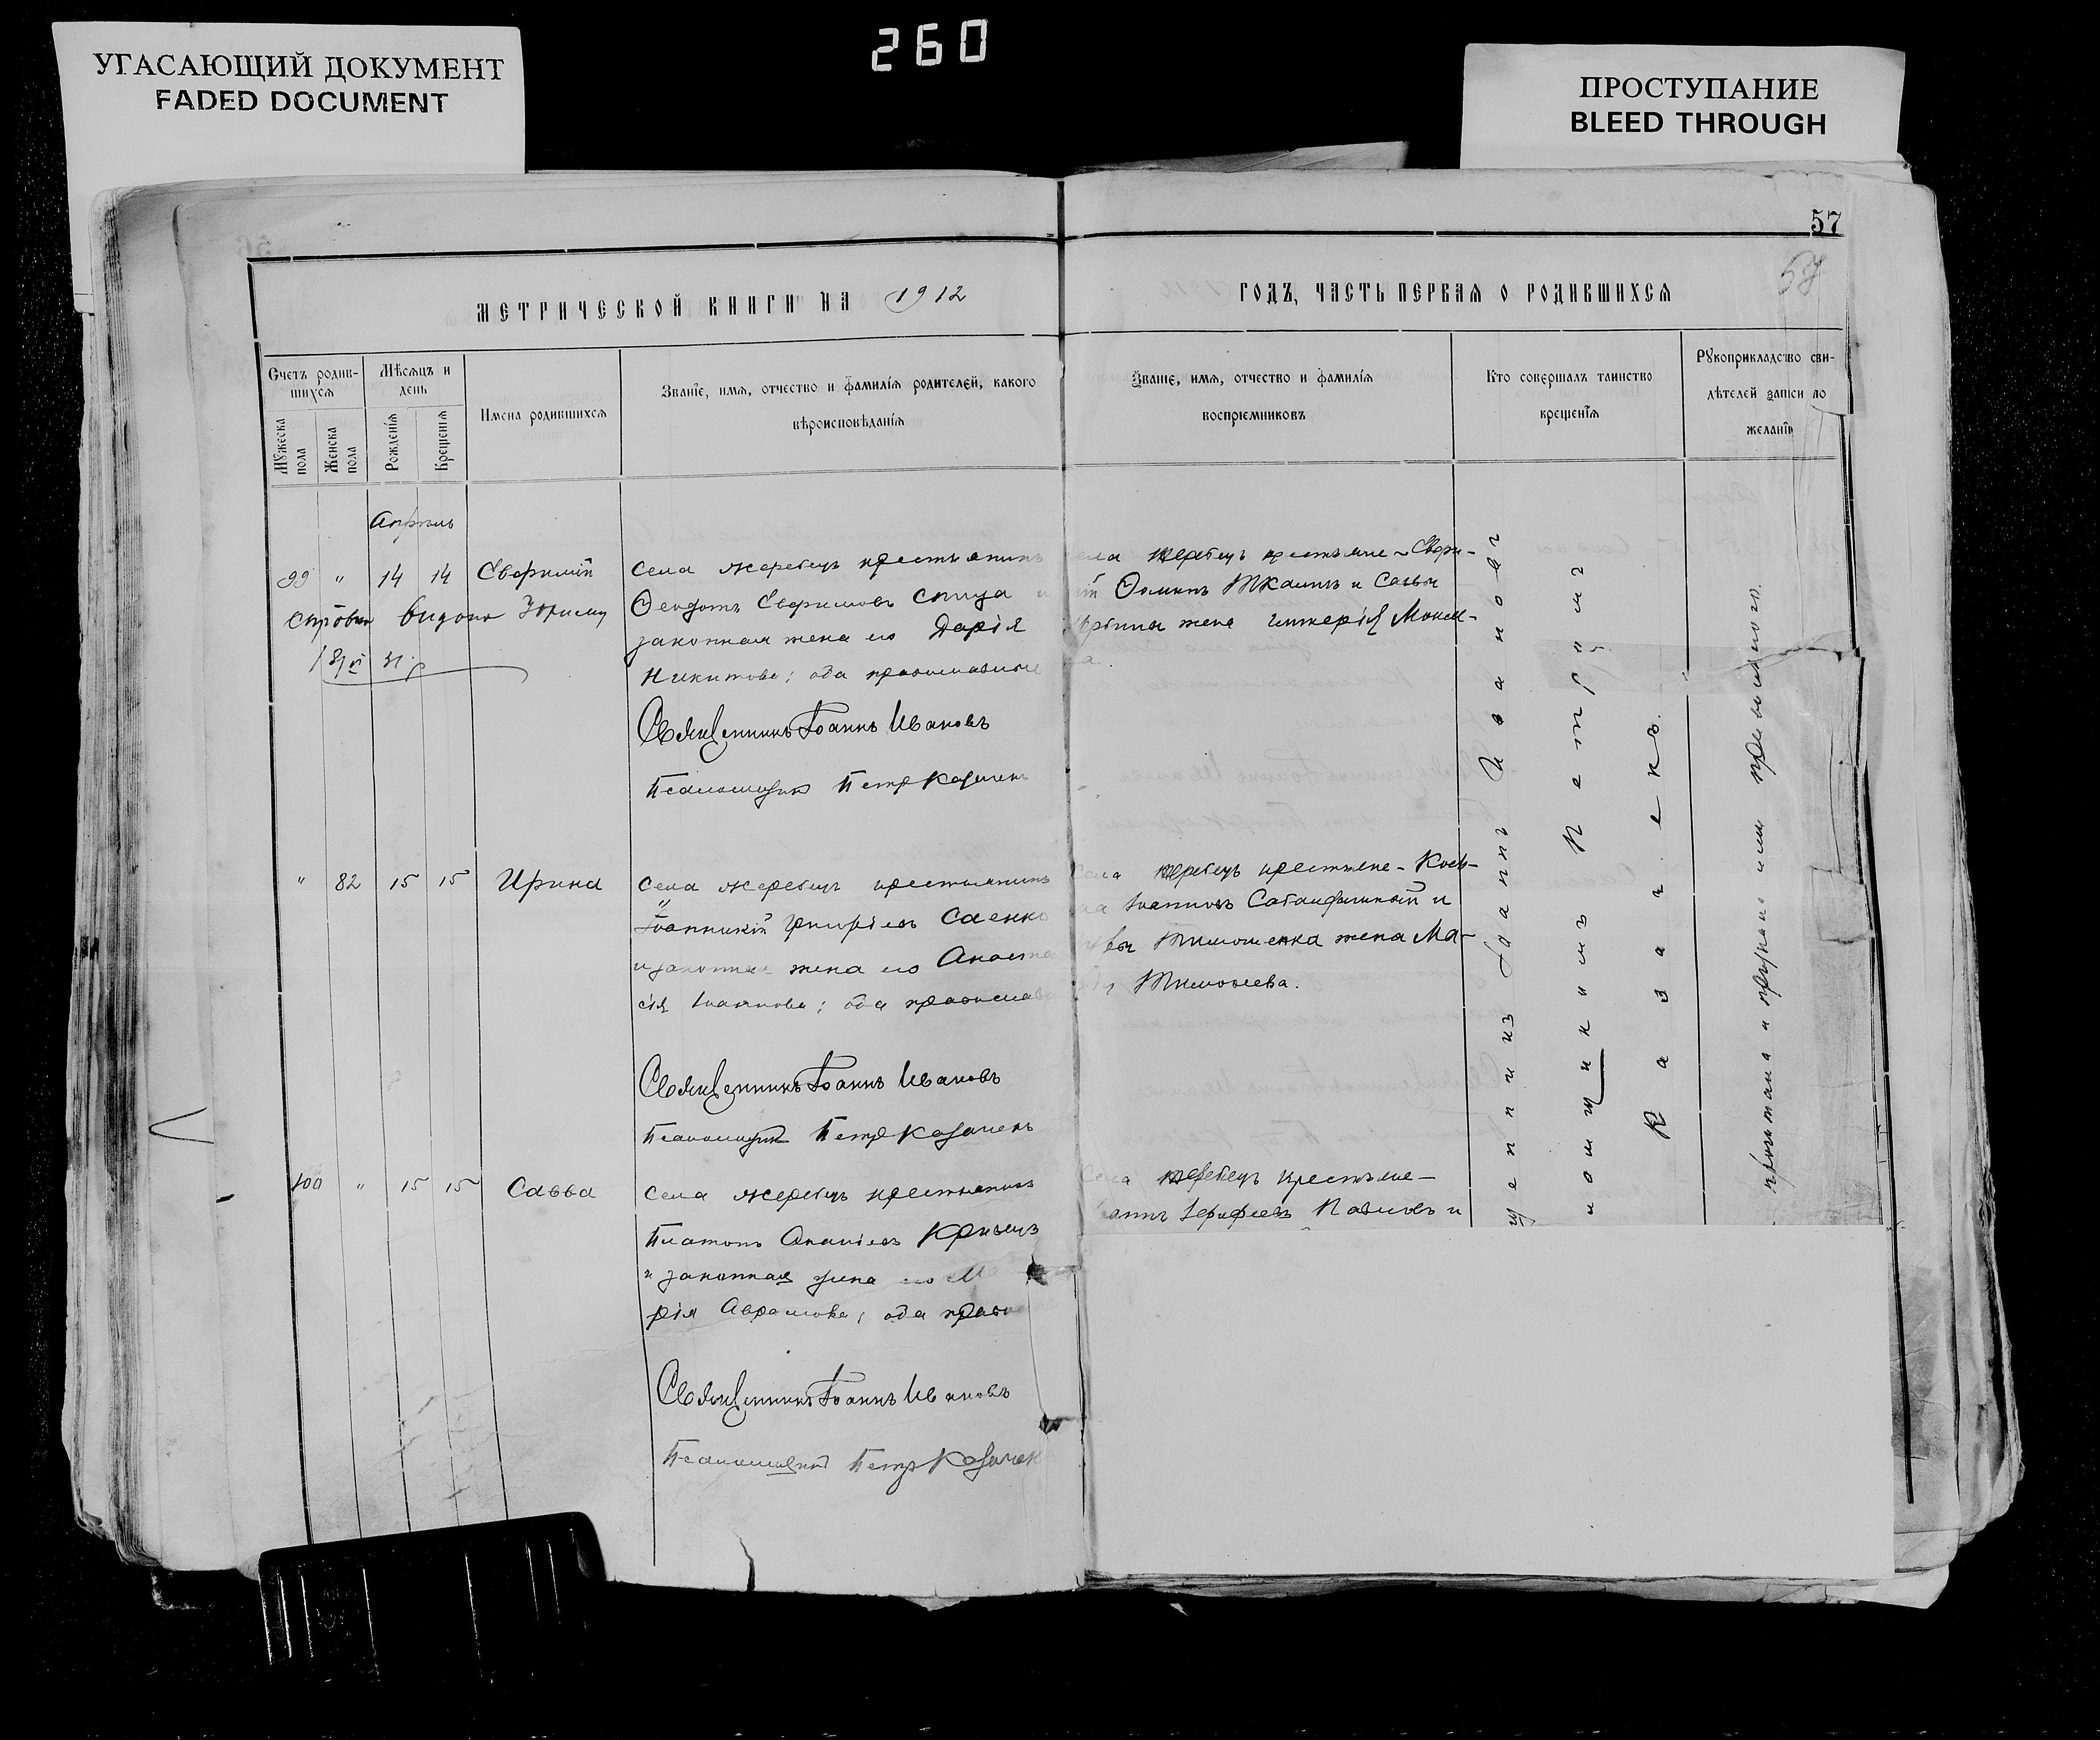 260
УГАСАЮЩИЙ ДОКУМЕНТ
FADED DOCUMENT
ПРОСТУПАНИЕ
BLEED THROUGH
57
57
МЕТРИЧЕСКОЙ КНИГИ НА 1912
ГОДЪ, ЧАСТЬ ПЕРВАЯ О РОДИВШИХСЯ
Счетъ родив-
шихся
Мужеска пола
Женска пола
Мѣсяцъ и
день
Рожденія
Крещенія
Имена родившихся
Званіе, имя, отчество и фамилія родителей, какого
вѣроисповѣданія
Званіе, имя, отчество и фамилія
воспріемниковъ
Кто совершалъ таинство
крещенія
Рукоприкладство сви-
дѣтелей записи по
желанію
Апрѣль
99 " 14 14 Евфимій
Села Жеребецъ крестьянинъ
Ѳеодотъ Евфимовъ Спица и
законная жена его Дарія
Никитова; оба православные
Священникъ Іоаннъ Ивановъ
Псаломщикъ Петръ Казачекъ
села Жеребецъ крестьяне - Евфи-
мій Ѳоминъ Ткачъ и Саввы
жена
" 82 15 15 Ирина
Села Жеребецъ крестьянинъ
Іоанникій Григоріевъ Саенко
и законная жена его Анаста
сія Іоаннова; оба православ
Священникъ Іоаннъ Ивановъ
Псаломщикъ Петръ Казачекъ
Села Жеребецъ крестьяне - Козь-
ма Іоанновъ и
Тимошенка жена Ма-
Тимоѳеева.
100 " 15 15 Савва
Села Жеребецъ крестьянинъ
Платонъ Ананіевъ Кривецъ
и законная жена его М
рія Аврамова; оба право
Священникъ Іоаннъ Ивановъ
Псаломщикъ Петръ Казачекъ
Села Жеребецъ крестьяне -
Павловъ и
щенникъ Іоаннъ Ивановъ
ломщикомъ Петромъ
Казачекъ.